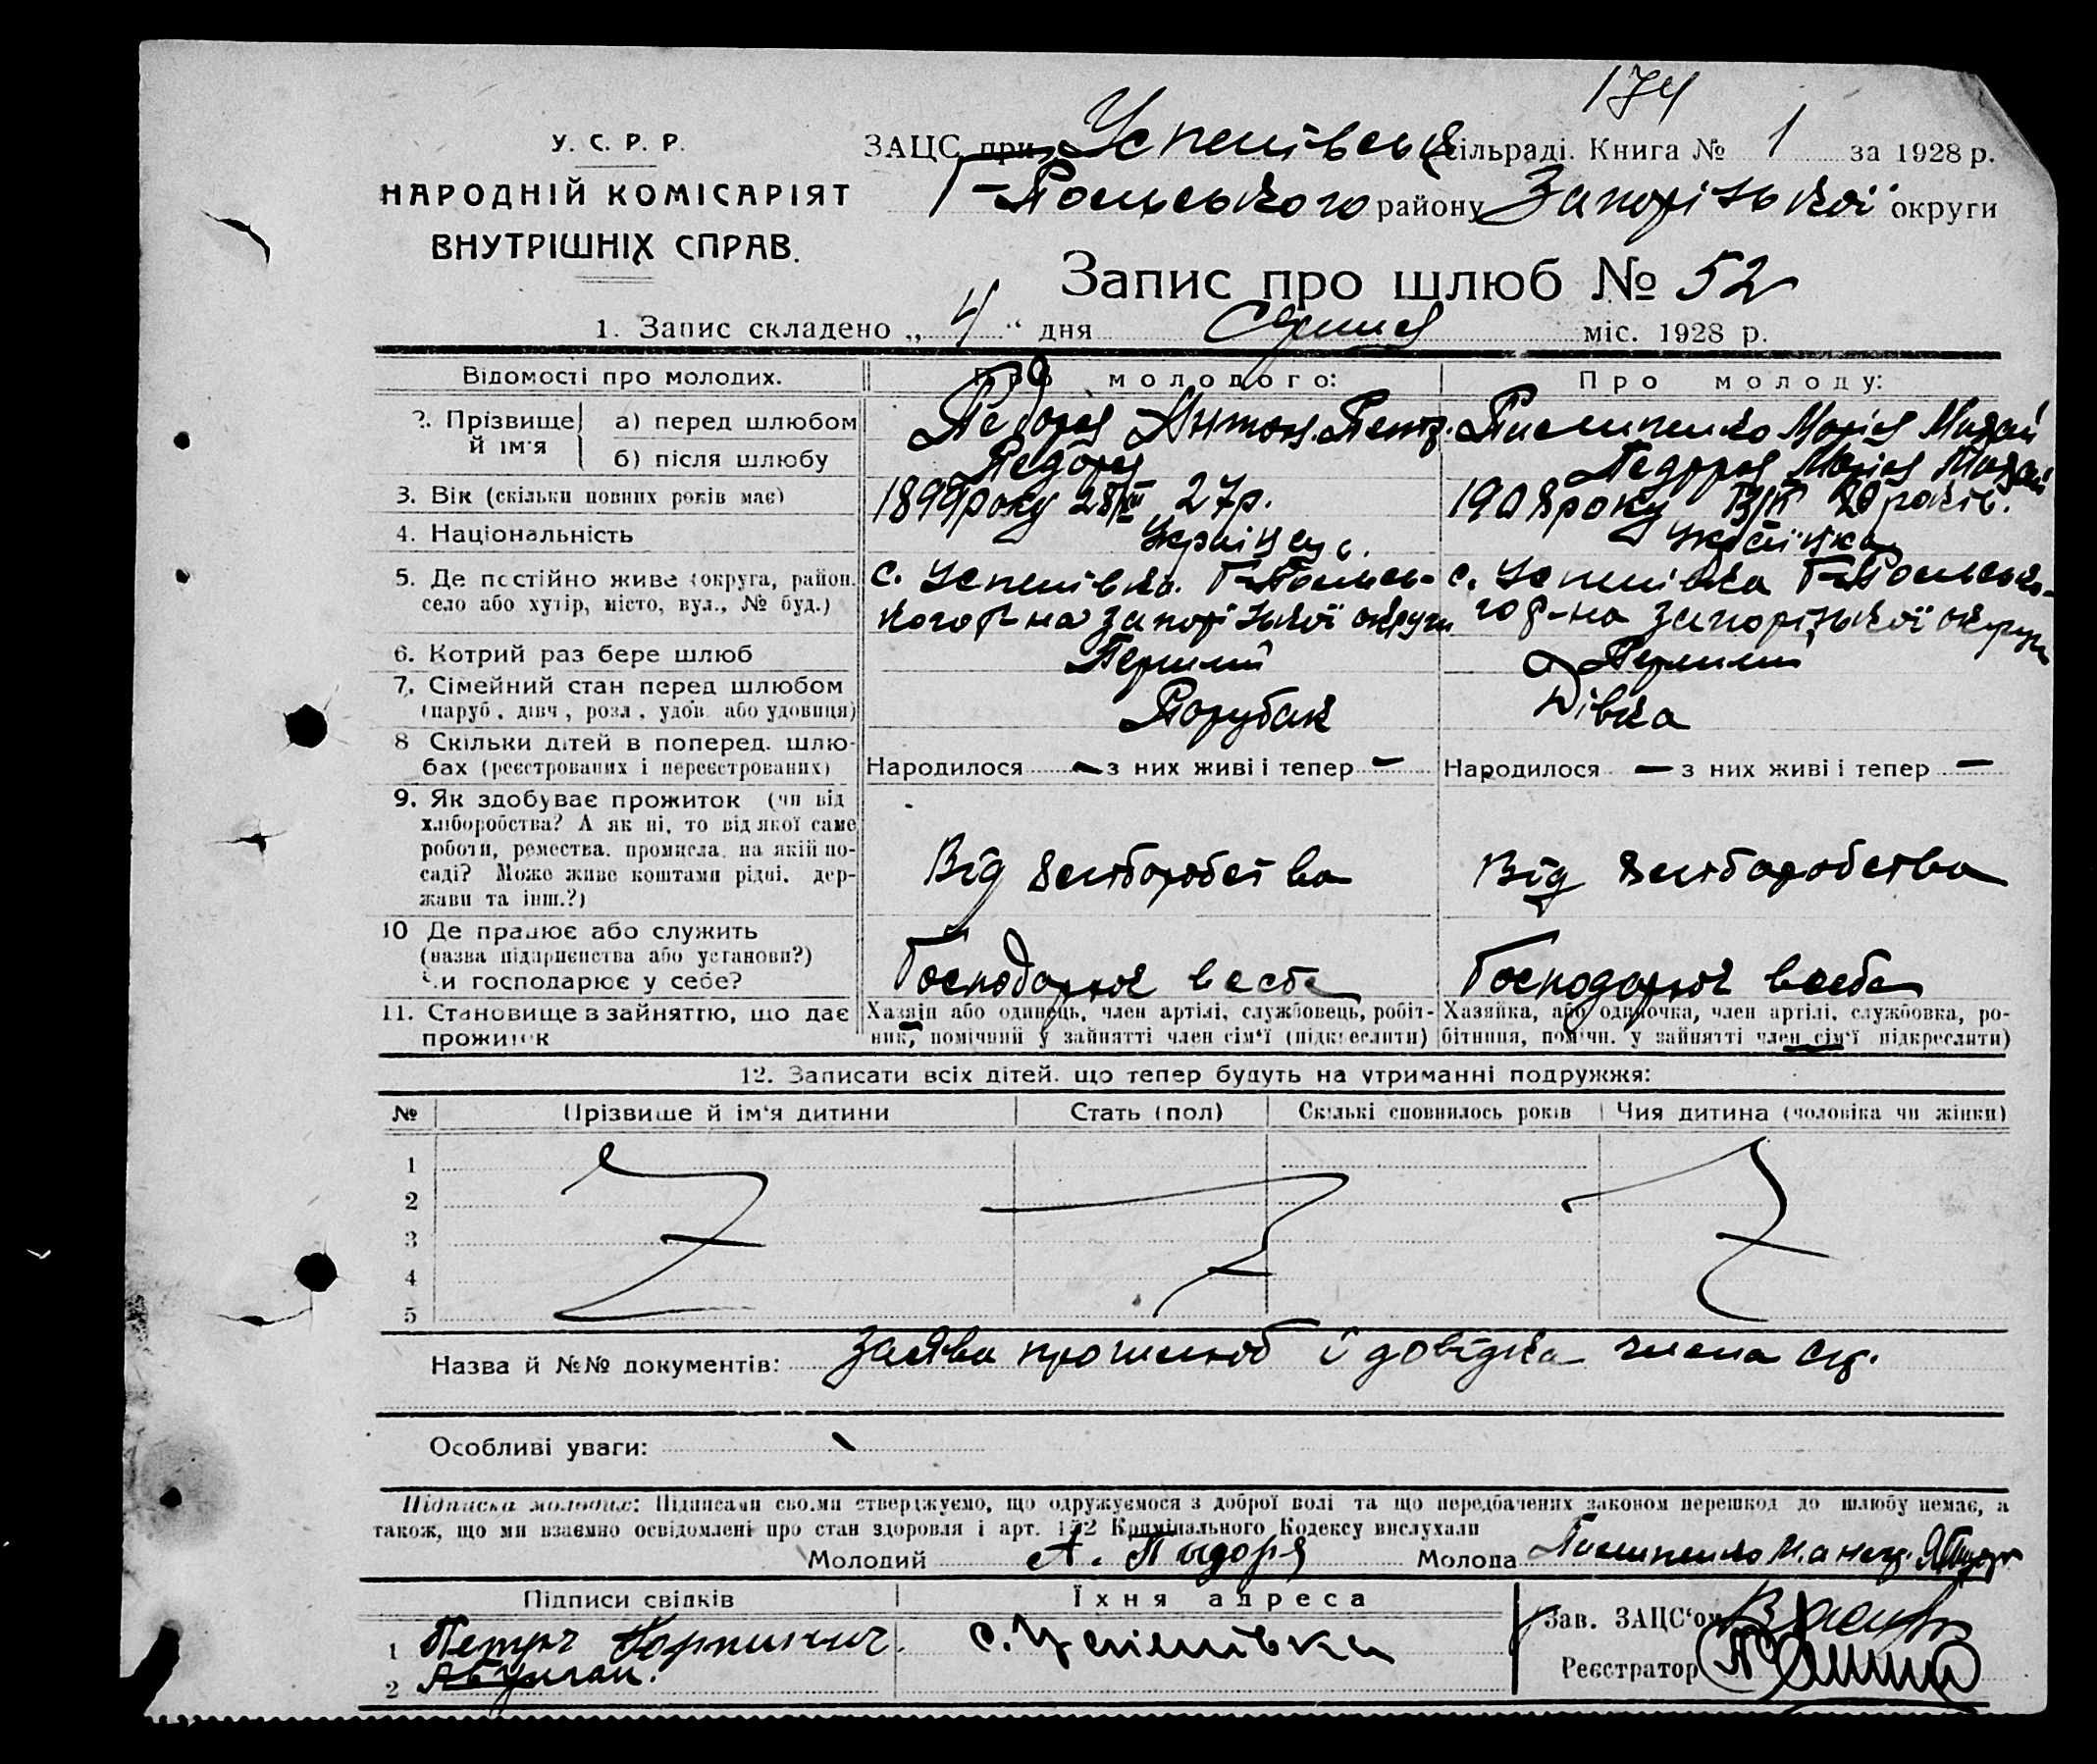 174
У. С. Р. Р.
НАРОДНІЙ КОМІСАРІЯТ
ВНУТРІШНІХ СПРАВ.
ЗАЦС при Успенівській сільраді. Книга № 1 за 1928 р.
Г-Польського району Запорізької округи
Запис про шлюб № 52
1. Запис складено „ 4 “ дня Серпня міс. 1928 р.
Відомості про молодих. Про молодого: Про молоду:
2. Прізвище й ім'я
а) перед шлюбом Педоря Антон. Петр. Марія
б) після шлюбу Педоря Педоря Марія
3. Вік (скільки повних років має) року 27р. 1908 року 20 років.
4. Національність Українець. Українка
5. Де постійно живе (округа, район, с. Успенівка. Г-Польсь- с. Успенівка Г-Польсько-
село або хутір, місто, вул., № буд.) кого р-на Запорізької округи го р-на Запорізької округи
6. Котрий раз бере шлюб Перший Перший
7. Сімейний стан перед шлюбом
(паруб., дівч., розл., удов. або удовиця) Парубак Дівка
8 Скільки дітей в поперед. шлю-
бах (реєстрованих і нереєстрованих) Народилося — з них живі і тепер — Народилося — з них живі і тепер —
9. Як здобуває прожиток (чи від
хліборобства? А як ні, то від якої саме
роботи, ремества, промисла, на якій по-
саді? Може живе коштами рідні, дер- Від хліборобства Від хліборобства
жави та інш.?)
10 Де працює або служить
(назва підприємства або установи?)
Чи господарює у себе? Господорює в себе Господорює в себе
11. Становище в зайняттю, що дає Хазяїн або одинець, член артілі, службовець, робіт- Хазяйка, або одиночка, член артілі, службовка, ро-
прожиток ник, помічний у зайнятті член сім'ї (підкреслити) бітниця, помічн. у зайнятті член сім'ї підкреслити)
12. Записати всіх дітей, що тепер будуть на утриманні подружжя:
№ Прізвише й ім'я дитини Стать (пол) Скількі сповнилось років Чия дитина (чоловіка чи жінки)
1
2
3
4
5
Назва й №№ документів: Заява про шлюб і довідка члена с/р.
Особливі уваги:
Підписка молодих: Підписами своїми стверджуємо, що одружуємося з доброї волі та що передбачених законом перешкод до шлюбу немає, а
також, що ми взаємно освідомлені про стан здоровля і арт. 152 Кримінального Кодексу вислухали
Молодий А. Пыдоря Молода
Підписи свілків Їхня адреса
1 Петро с. Успенівка
2
Зав. ЗАЦС'ом
Реєстратор